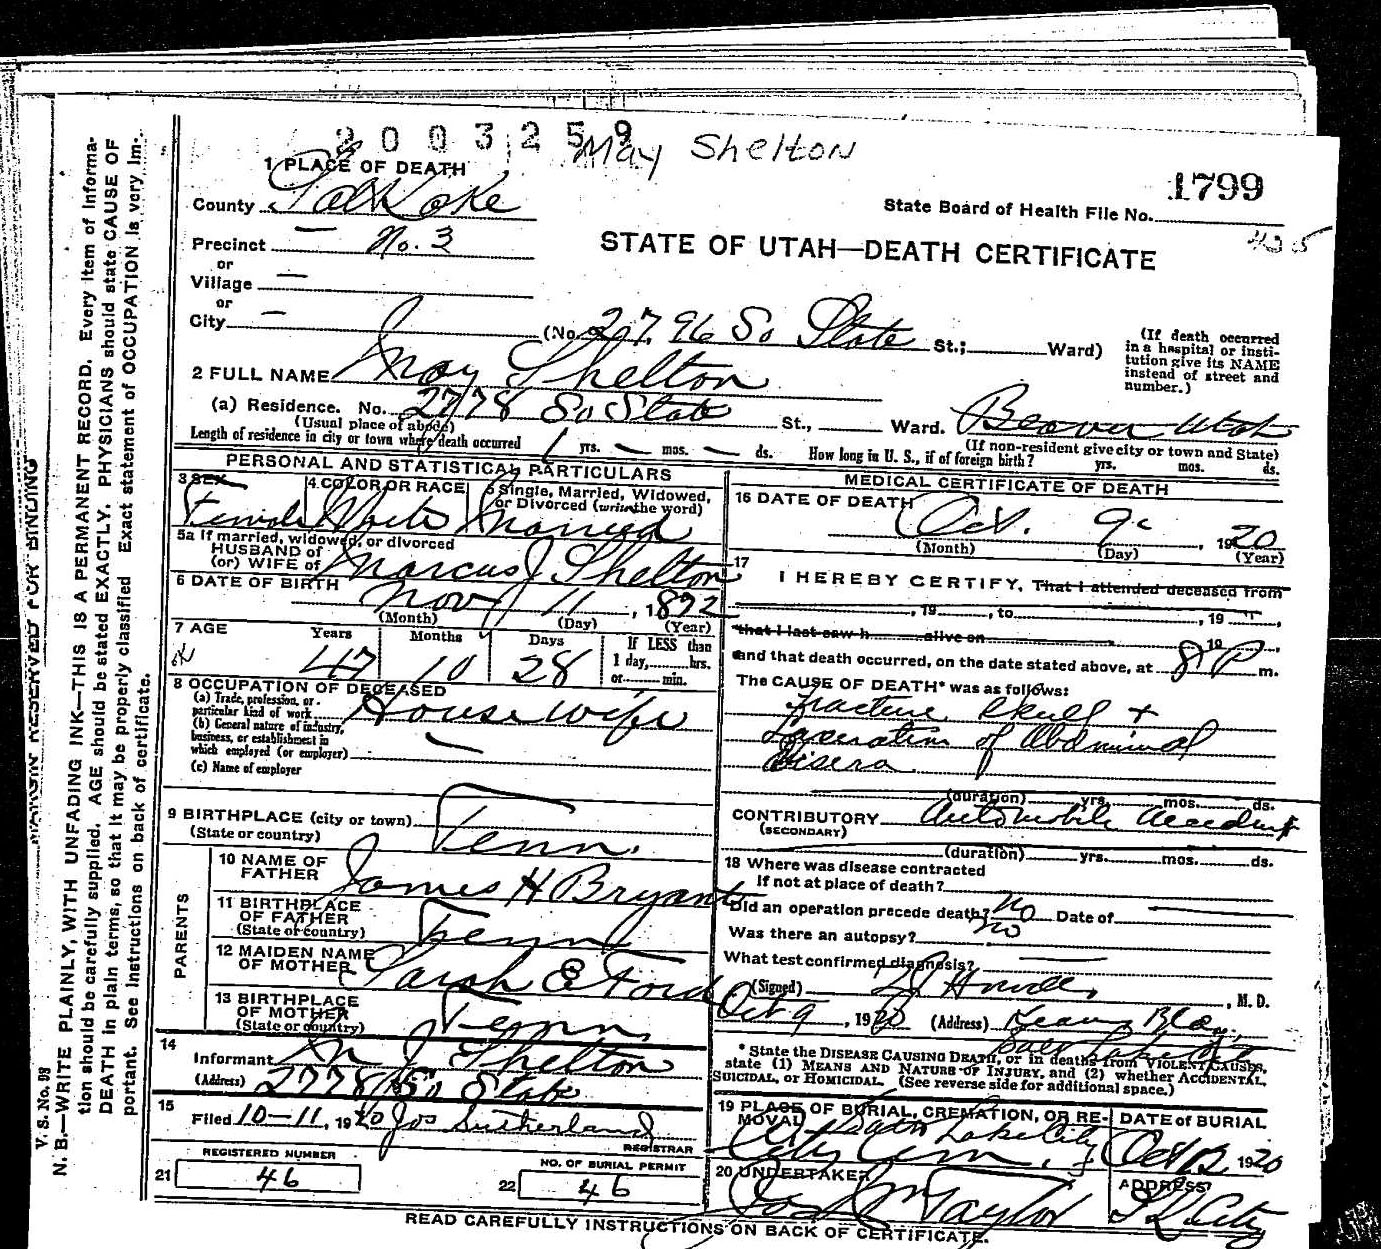 2003259
May Shelton
1 PLACE OF DEATH
1799
County Salt Lake
State Board of Health File No.
Precinct No. 3
STATE OF UTAH—DEATH CERTIFICATE
or
Village —
or
City — (No. 2796 So State St.; Ward)
(If death occurred in a hospital or insti-
tution give its NAME instead of street and number.)
2 FULL NAME May Shelton
(a) Residence. No. 2778 So State St., Ward. Beaver Utah
(Usual place of abode) (If non-resident give city or town and State)
Length of residence in city or town where death occurred 1 yrs. — mos. — ds. How long in U. S., if of foreign birth? yrs. mos. ds.
PERSONAL AND STATISTICAL PARTICULARS
3 SEX Female
4 COLOR OR RACE White
5 Single, Married, Widowed, or Divorced (write the word) Married
5a If married, widowed, or divorced
HUSBAND of
(or) WIFE of Marcus J Shelton
6 DATE OF BIRTH Nov 11, 1872
(Month) (Day) (Year)
7 AGE Years Months Days If LESS than
47 10 28 1 day, hrs.
or min.
8 OCCUPATION OF DECEASED
(a) Trade, profession, or particular kind of work House wife
(b) General nature of industry, business, or establishment in which employed (or employer) —
(c) Name of employer
9 BIRTHPLACE (city or town) Tenn.
(State or country)
PARENTS
10 NAME OF FATHER James H Bryant
11 BIRTHPLACE OF FATHER Tenn
(State or country)
12 MAIDEN NAME OF MOTHER Sarah E Ford
13 BIRTHPLACE OF MOTHER Tenn.
(State or country)
14
Informant M J Shelton
(Address) 2778 So State
15
Filed 10-11, 1920 Jos Sutherland
REGISTRAR
REGISTERED NUMBER
21 46
NO. OF BURIAL PERMIT
22 46
MEDICAL CERTIFICATE OF DEATH
16 DATE OF DEATH Oct. 9, 1920
(Month) (Day) (Year)
17
I HEREBY CERTIFY, That I attended deceased from
, 19 , to , 19 ,
that I last saw h alive on 19
and that death occurred, on the date stated above, at 8 P m.
The CAUSE OF DEATH* was as follows:
Fracture Skull +
Laceration of Abdominal
Viscera
(duration) yrs. mos. ds.
CONTRIBUTORY Automobile Accident
(SECONDARY)
(duration) yrs. mos. ds.
18 Where was disease contracted
If not at place of death?
Did an operation precede death? No Date of —
Was there an autopsy? No
What test confirmed diagnosis? —
(Signed) , M. D.
Oct 9, 1920 (Address) Kearns Bldg.
Salt Lake City
* State the DISEASE CAUSING DEATH, or in deaths from VIOLENT CAUSES,
state (1) MEANS AND NATURE OF INJURY, and (2) whether ACCIDENTAL,
SUICIDAL, or HOMICIDAL. (See reverse side for additional space.)
19 PLACE OF BURIAL, CREMATION, OR RE-
MOVAL Salt Lake City
City Cem.
DATE of BURIAL
Oct 12 1920
20 UNDERTAKER Taylor
ADDRESS S L City
READ CAREFULLY INSTRUCTIONS ON BACK OF CERTIFICATE.
MARGIN RESERVED FOR BINDING
V. S. No. 98
N. B.—WRITE PLAINLY, WITH UNFADING INK—THIS IS A PERMANENT RECORD. Every item of informa-
tion should be carefully supplied. AGE should be stated EXACTLY. PHYSICIANS should state CAUSE OF
DEATH in plain terms, so that it may be properly classified Exact statement of OCCUPATION is very im-
portant. See instructions on back of certificate.